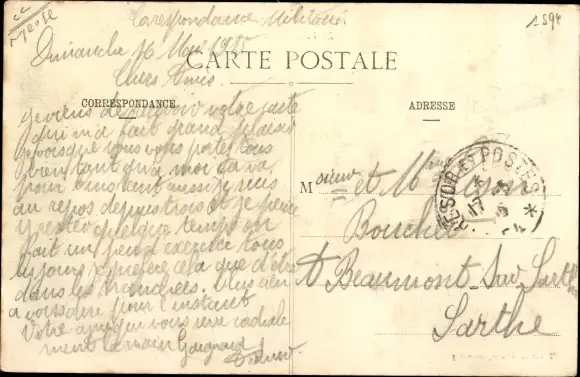 Meuse
1594
Correspondance Militaire
Dimanche 16 Mai 1915
CARTE POSTALE
Chers Amis
CORRESPONDANCE
ADRESSE
je viens de recevoir votre carte
qui m'a fait grand plaisir
je vois que vous vous portez tous
bien tant qu'a moi ça va
pour l'instant aussi je suis
au repos depuis trois je pense
y rester quelque temps on
fait un peu d'exercice tous
les jours je prefere cela que d'être
dans les tranchées. Plus rien
a vous dire pour l'instant
Votre ami qui vous serre cordiale
ment la main Gaignard
Monsieur et Mme
Boucher
A Beaumont Sur Sarthe
Sarthe
TRESOR ET POSTES